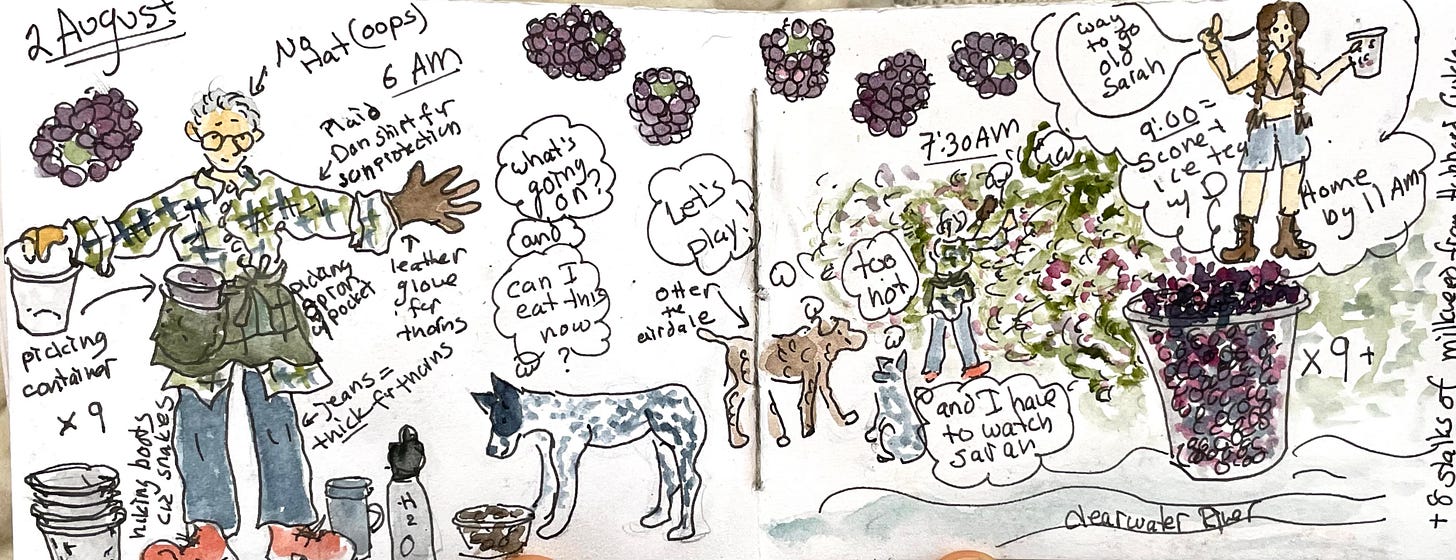 2 August
No
Hat (oops)
6 AM
Plaid
Dan shirt for
sunprotection
leather
glove
for
thorns
picking
apron
w/ pocket
picking
container
x 9
hiking boots
cuz snakes
jeans =
thick for thorns
H2O
what's
going
on?
and
can I
eat this
now
?
Let's
play!
otter
the
airdale
7:30 AM
too
hot
and I have
to watch
sarah
way
to go
old
Sarah
9:00 =
Scone +
ice tea
w/ D
Home
by 11 AM
x 9 +
clearwater River
+ 8 stalks of milkweed for